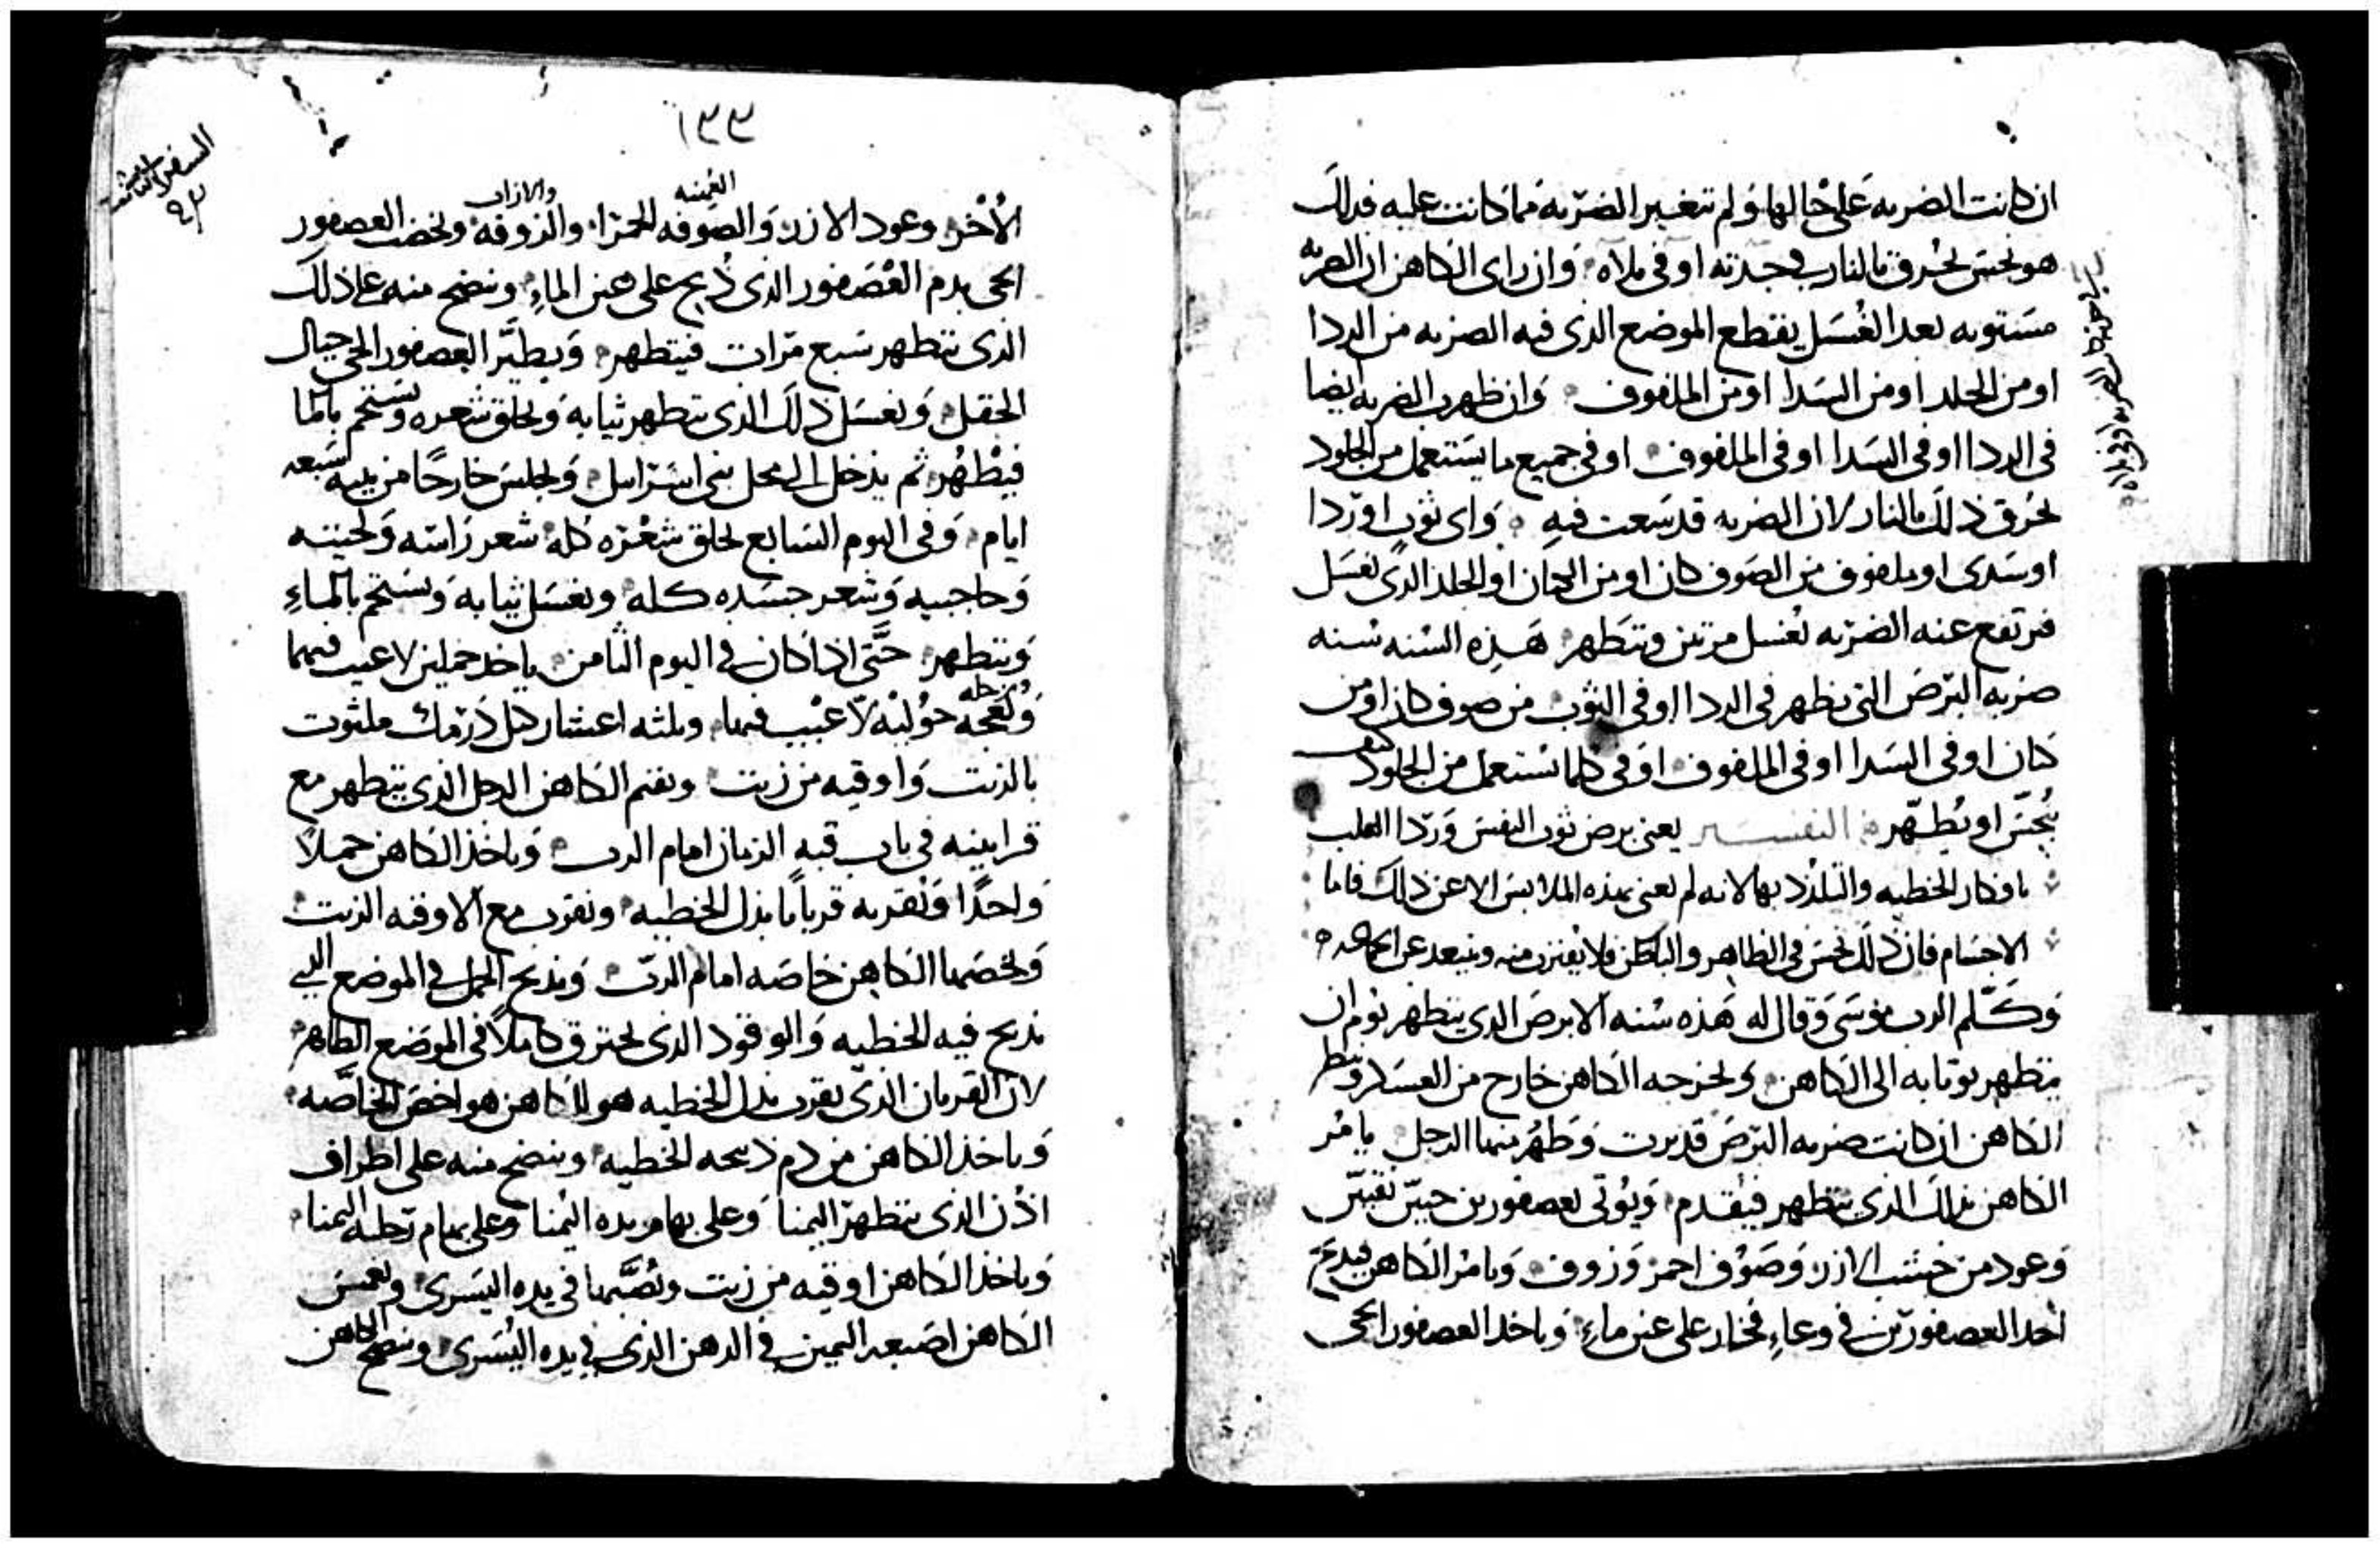 ان كانت الضربه على حالها ولم تتغير الضربه مما كانت عليه فذلك
هو نجس يحرق بالنار في جدته او في ملاه وان راى الكاهن ان الضربه
مستويه بعد الغسل يقتطع الموضع الذي فيه الضربه من الردا
او من الجلد او من السدا او من الملفوف وان ظهرت الضربه ايضا
في الردا او في السدا او في الملفوف او في جميع ما يستعمل من الجلود
يحرق ذلك بالنار لان الضربه قد سعت فيه واى ثوب او ردا
او سدى او ملفوف من الصوف كان او من الكتان او الجلد الذي يغسل
فترتفع عنه الضربه يغسل مرتين ويتطهر هذه السنه سنه
ضربه البرص التي تظهر في الردا او في الثوب من صوف كان او من
كتان او في السدا او في الملفوف او في كلما يستعمل من الجلود كيف
ينجس او يطهر التفسير يعني برص ثوب النفس وردا القلب
بافكار الخطيه والتلذذ بها لانه لم يعنى بهذه الملابس الا عن ذلك فاما
الاجسام فان ذلك نجس في الظاهر والباطن فلا يقترن منه ويبعد عن الجماعه
وكلم الرب موسى وقال له هذه سنه الابرص الذي يتطهر يوم ان
يتطهر يوتا به الى الكاهن ويخرجه الكاهن خارج من العسكر وينظر
الكاهن ان كانت ضربه البرص قد بريت وطهر منها الرجل يامر
الكاهن بذلك الذي يتطهر فيقدم ويوتى بعصفورين حيين نقيين
وعود من خشب الارز وصوف احمر وزوف ويامر الكاهن فيدبح
احد العصفورين في وعاء فخار على عين ماء وياخذ العصفور الحي
١٣٣
السفر الثالث
٩٣
الاخر وعود الارز والصوفه الحمرا والزوفه ويخضب العصفور
الحي بدم العصفور الذي ذبح على عين الماء وينضح منه على ذلك
الذي يتطهر سبع مرات فيتطهر ويطير العصفور الحي حيال
الحقل ويغسل ذلك الذي يتطهر ثيابه ويحلق شعره ويستحم بالما
فيطهر ثم يدخل الى محل بني اسراييل ويجلس خارجا من بيته سبعه
ايام وفي اليوم السابع يحلق شعره كله شعر راسه ولحيته
وحاجبيه وشعر جسده كله ويغسل ثيابه ويستحم بالماء
ويتطهر حتى اذا كان في اليوم الثامن ياخد حملين لا عيب فيهما
ونعجه حوليه لا عيب فيها وثلثه اعشار كيل درمك ملثوت
بالزيت واوقيه من زيت ويقيم الكاهن الرجل الذي يتطهر مع
قرابينه في باب قبه الزمان امام الرب وياخذ الكاهن حملا
واحدا ويقربه قربانا بدل الخطيه ويقرب مع الاوقيه الزيت
ويخصهما الكاهن خاصه امام الرب ويذبح الحمل في الموضع الذي
يذبح فيه الخطيه والوقود الذي يحترق كاملا في الموضع الطاهر
لان القربان الذي يقرب بدل الخطيه هو للكاهن هو اخص الخاصه
وياخذ الكاهن من دم ذبيحه الخطيه وينضح منه على اطراف
اذن الذي يتطهر اليمنا وعلى بهام يده اليمنا وعلى بهام رجله اليمنا
وياخذ الكاهن اوقيه من زيت ويصبها في يده اليسرى ويغمس
الكاهن اصبعه اليمين في الدهن الذي في يده اليسرى وينضح الكاهن